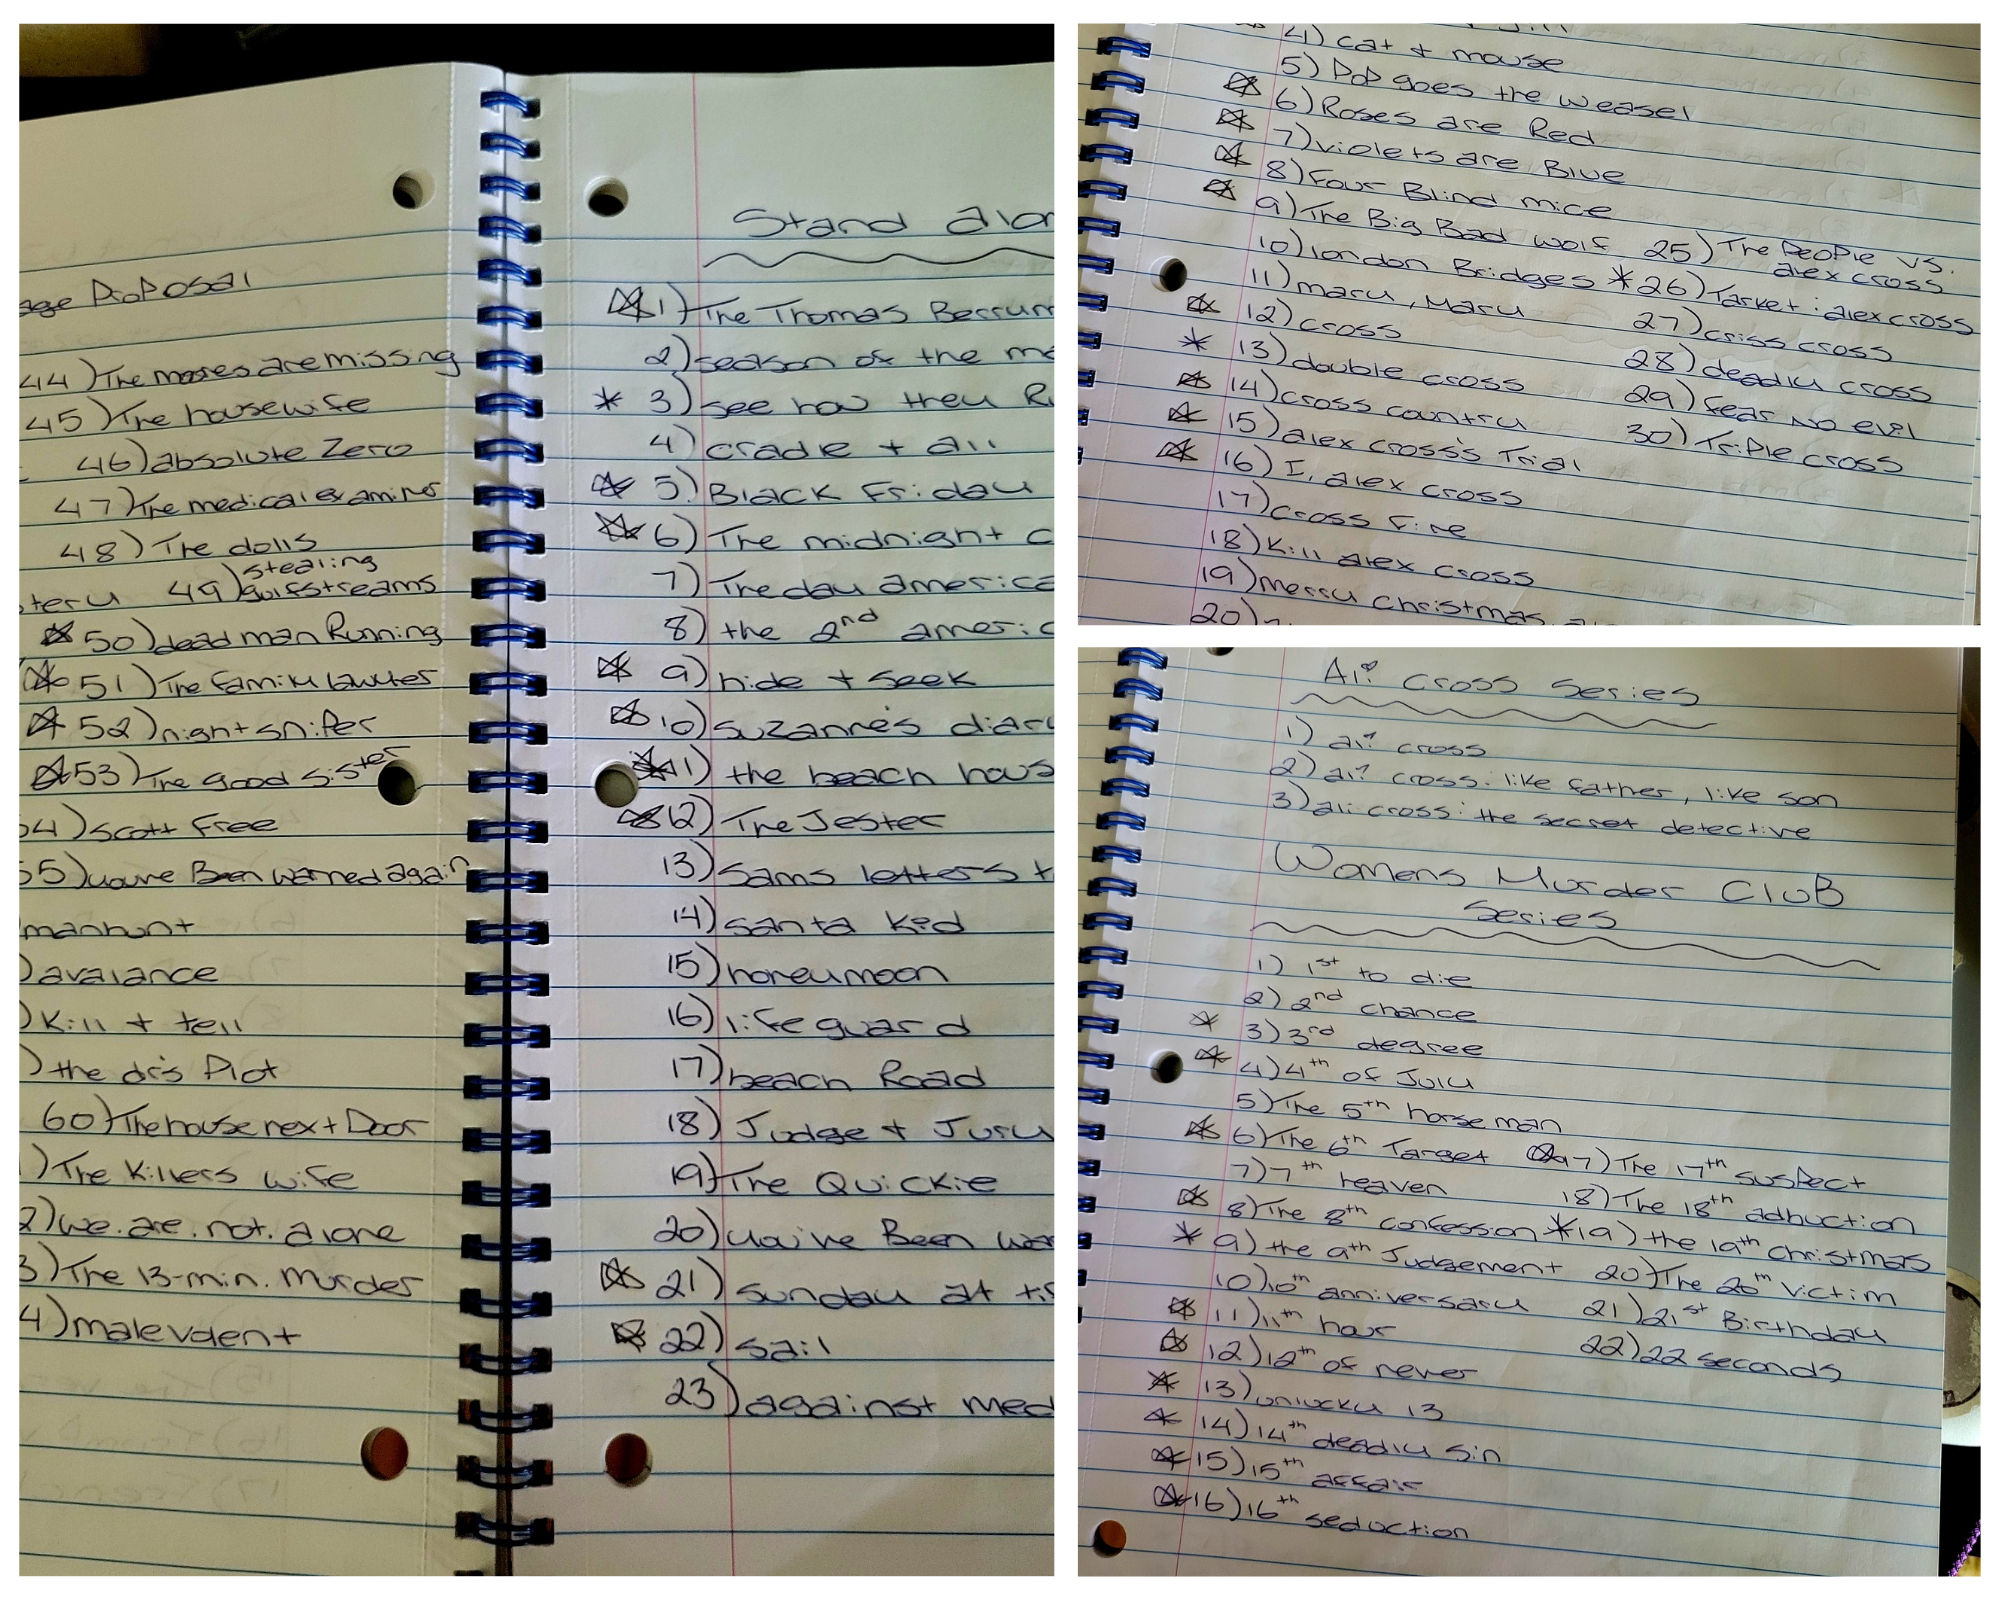 Proposal
44) The moores are missing
45) The housewife
46) absolute Zero
47) The medical examiner
48) The dolls
49) stealing
gulfstreams
50) dead man Running
51) The family lawyer
52) night sniper
53) The good sister
54) Scott Free
55) you've Been warned again
manhunt
) avalance
) Kill + tell
) the dr's Plot
60) The house next Door
) The Killers wife
2) we. are. not. alone
3) The 13-min. Murder
4) malevolent
Stand alon
1) The Thomas Berrym
2) season of the ma
3) see how they R
4) cradle + all
5) Black Friday
6) The midnight c
7) The day america
8) the 2nd americ
9) hide + seek
10) suzanne's diary
11) the beach hous
12) The Jester
13) sams letters t
14) santa Kid
15) honeymoon
16) lifeguard
17) beach Road
18) Judge + Jury
19) The Quickie
20) you've Been war
21) sunday at ti
22) sail
23) against med
4) cat + mouse
5) Pop goes the weasel
6) Roses are Red
7) violets are Blue
8) Four Blind mice
9) The Big Bad wolf
10) london Bridges
11) mary, Mary
12) cross
13) double cross
14) cross country
15) alex cross's Trial
16) I, alex cross
17) cross Fire
18) Kill alex cross
19) merry christmas, a
20)
25) The People vs.
alex cross
26) Target: alex cross
27) criss cross
28) deadly cross
29) fear no evil
30) Triple cross
Ali cross series
1) ali cross
2) ali cross: like father, like son
3) ali cross: the secret detective
Womens Murder CluB
series
1) 1st to die
2) 2nd chance
3) 3rd degree
4) 4th of July
5) The 5th horseman
6) The 6th Target
7) 7th heaven
8) The 8th confession
9) the 9th Judgement
10) 10th anniversary
11) 11th hour
12) 12th of never
13) unlucky 13
14) 14th deadly sin
15) 15th affair
16) 16th seduction
17) The 17th suspect
18) The 18th adbuction
19) the 19th christmas
20) The 20th victim
21) 21st Birthday
22) 22 seconds